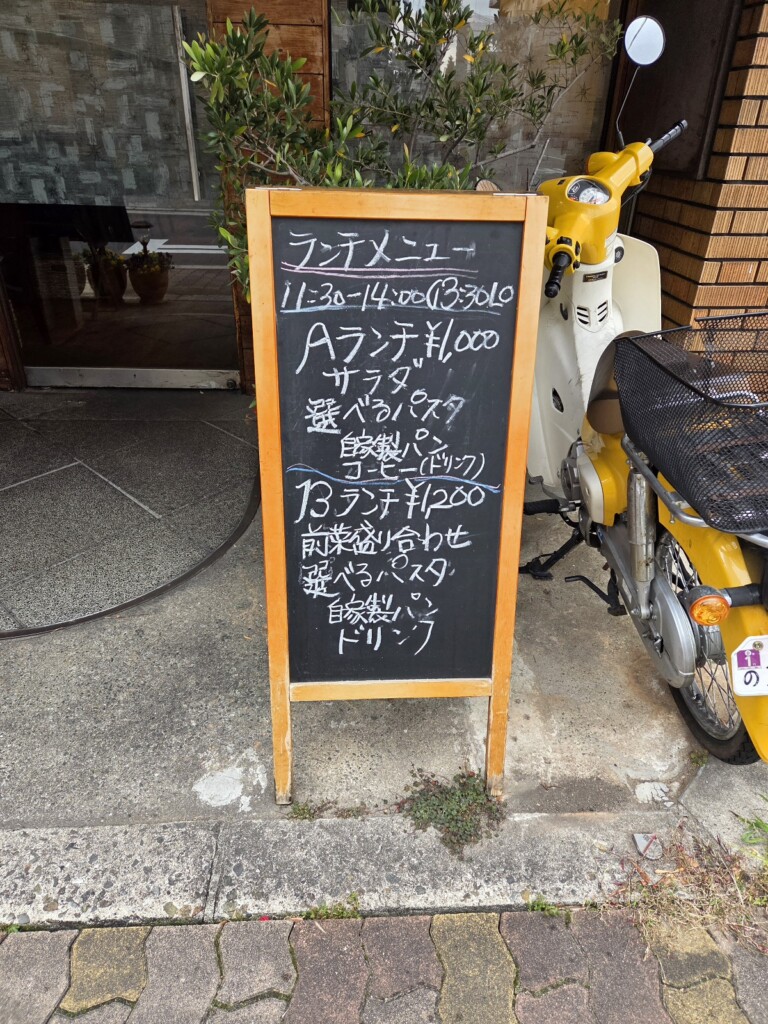 ランチメニュー
11:30-14:00(13:30LO
Aランチ¥1,000
サラダ
選べるパスタ
自家製パン
コーヒー(ドリンク)
Bランチ¥1,200
前菜盛り合わせ
選べるパスタ
自家製パン
ドリンク
1
の